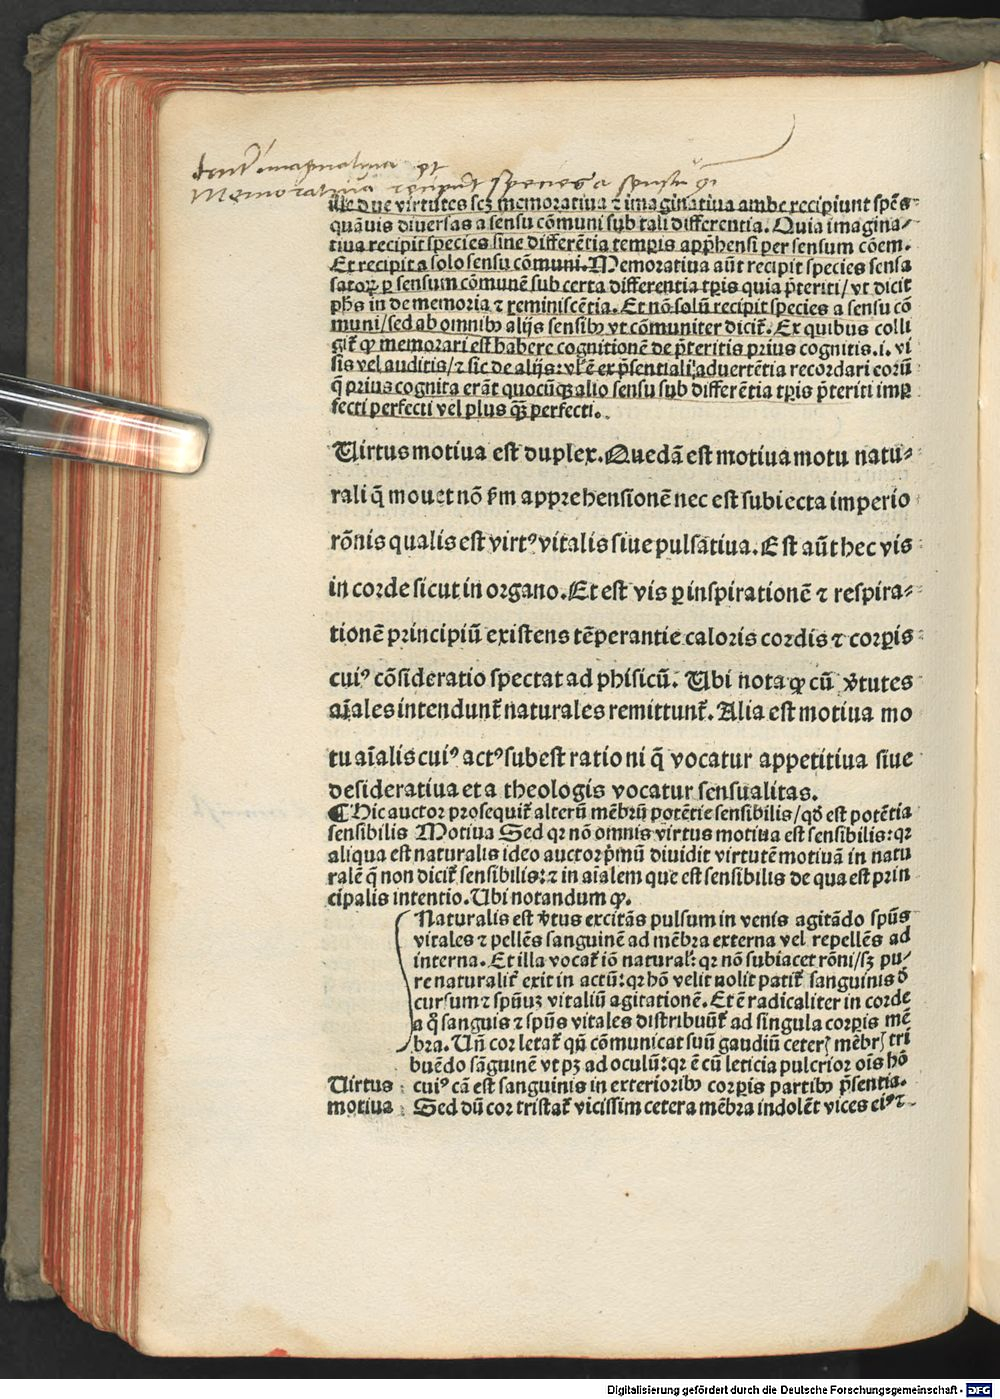 imaginatiua et
Memoratiua recipiũt species a sensu
ille due virtutes scȝ memoratiua ⁊ imaginatiua ambe recipiunt spẽs
quãuis diuersas a sensu cõmuni sub tali differentia. Quia imagina⸗
tiua recipit species sine differẽtia temꝑis apprehensi per sensum cõem.
Et recipit a solo sensu cõmuni. Memoratiua aũt recipit species sensa
satoꝝ ꝑ sensum cõmunẽ sub certa differentia tꝑis quia p̃teriti/ vt dicit
ph̃s in de memoria ⁊ reminiscẽtia. Et nõ solũ recipit species a sensu cõ
muni/ sed ab omnibꝰ alijs sensibꝰ vt cõmuniter dicit᷑. Ex quibus colli
git᷑ ꝙ memorari est habere cognitionẽ de p̃teritis prius cognitis .i. vi
sis vel auditis/ ⁊ sic de alijs: vl᷑ ẽ ex p̃sentiali aduertẽtia recordari eorũ
q̃ prius cognita erãt quocũqȝ alio sensu sub differẽtia tꝑis p̃teriti imꝑ
fecti perfecti vel plus qȝ̃ perfecti.
Uirtus motiua est duplex. Quedã est motiua motu natu⸗
rali q̃ mouet nõ s̃m apprehensionẽ nec est subiecta imperio
rõnis qualis est virtꝰ vitalis siue pulsatiua. Est aũt hec vis
in corde sicut in organo. Et est vis ꝑ inspirationẽ ⁊ respira⸗
tionẽ principiũ existens tẽperantie caloris cordis ⁊ corꝑis
cuiꝰ cõsideratio spectat ad phisicũ. Ubi nota ꝙ cũ v̾tutes
aĩales intendunt᷑ naturales remittunt᷑. Alia est motiua mo
tu aĩalis cuiꝰ actꝰ subest rationi q̃ vocatur appetitiua siue
desideratiua et a theologis vocatur sensualitas.
¶ Hic auctor prosequit᷑ alterũ mẽbrũ potẽtie sensibilis/ qđ est potẽtia
sensibilis Motiua Sed qꝛ nõ omnis virtus motiua est sensibilis: qꝛ
aliqua est naturalis ideo auctor p̃mũ diuidit virtutẽ motiuã in natu
ralẽ q̃ non dicit᷑ sensibilis: ⁊ in aĩalem que est sensibilis de qua est prin
cipalis intentio. Ubi notandum ꝙ.
Naturalis est v̾tus excitãs pulsum in venis agitãdo spũs
vitales ⁊ pellẽs sanguinẽ ad mẽbra externa vel repellẽs ad
interna. Et illa vocat᷑ iõ natural᷑: qꝛ nõ subiacet rõni/ sȝ pu⸗
re naturalit᷑ exit in actũ: qꝛ hõ velit nolit patit᷑ sanguinis đ
cursum ⁊ spũuȝ vitaliũ agitationẽ. Et ẽ radicaliter in corde
a q̊ sanguis ⁊ spũs vitales distribuũt᷑ ad singula corꝑis mẽ
bra. Uñ cor letat᷑ qñ cõmunicat suũ gaudiũ ceterꝭ mẽbrꝭ tri
buẽdo sãguinẽ vt pȝ ad oculũ: qꝛ ẽ cũ leticia pulcrior oĩs hõ
Uirtus cuiꝰ cã est sanguinis in exterioribꝰ corꝑis partibꝰ p̃sentia.
motiua Sed dũ cor tristat᷑ vicissim cetera mẽbra indolẽt vices eiꝰ ⁊
Digitalisierung gefördert durch die Deutsche Forschungsgemeinschaft - DFG